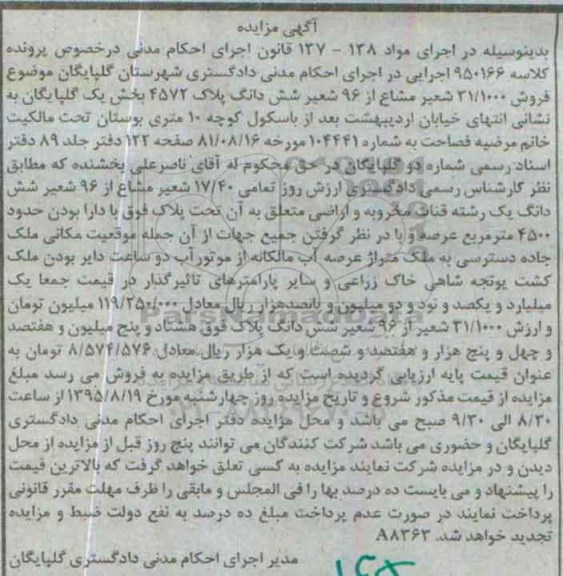 آگهی مزایده
بدینوسیله در اجرای مواد ۱۳۸ - ۱۳۷ قانون اجرای احکام مدنی درخصوص پرونده
کلاسه ۹۵۰۱۶۶ اجرایی در اجرای احکام مدنی دادگستری شهرستان گلپایگان موضوع
فروش ۳۱/۱۰۰۰ شعیر مشاع از ۹۶ شعیر شش دانگ پلاک ۴۵۷۲ بخش یک گلپایگان به
نشانی انتهای خیابان اردیبهشت بعد از باسکول کوچه ۱۰ متری بوستان تحت مالکیت
خانم مرضیه فصاحت به شماره ۱۰۴۴۴۱ مورخه ۸۱/۰۸/۱۶ صفحه ۱۲۲ دفتر جلد ۸۹ دفتر
اسناد رسمی شماره دو گلپایگان در حق محکوم له آقای ناصرعلی بخشنده که مطابق
نظر کارشناس رسمی دادگستری ارزش روز تمامی ۱۷/۴۰ شعیر مشاع از ۹۶ شعیر شش
دانگ یک رشته قنات مخروبه و اراضی متعلق به آن تحت پلاک فوق با دارا بودن حدود
۴۵۰۰ مترمربع عرصه و با در نظر گرفتن جمیع جهات از آن جمله موقعیت مکانی ملک
جاده دسترسی به ملک متراژ عرصه آب مالکانه از موتور آب دو ساعت دایر بودن ملک
کشت یونجه شاهی خاک زراعی و سایر پارامترهای تاثیرگذار در قیمت جمعا یک
میلیارد و یکصد و نود و دو میلیون و پانصدهزار ریال معادل ۱۱۹/۲۵۰/۰۰۰ میلیون تومان
و ارزش ۳۱/۱۰۰۰ شعیر از ۹۶ شعیر شش دانگ پلاک فوق هشتاد و پنج میلیون و هفتصد
و چهل و پنج هزار و هفتصد و شصت و یک هزار ریال معادل ۸/۵۷۴/۵۷۶ تومان به
عنوان قیمت پایه ارزیابی گردیده است که از طریق مزایده به فروش می رسد مبلغ
مزایده از قیمت مذکور شروع و تاریخ مزایده روز چهارشنبه مورخ ۱۳۹۵/۸/۱۹ از ساعت
۸/۳۰ الی ۹/۳۰ صبح می باشد و محل مزایده دفتر اجرای احکام مدنی دادگستری
گلپایگان و حضوری می باشد شرکت کنندگان می توانند پنج روز قبل از مزایده از محل
دیدن و در مزایده شرکت نمایند مزایده به کسی تعلق خواهد گرفت که بالاترین قیمت
را پیشنهاد و می بایست ده درصد بها را فی المجلس و مابقی را ظرف مهلت مقرر قانونی
پرداخت نمایند در صورت عدم پرداخت مبلغ ده درصد به نفع دولت ضبط و مزایده
تجدید خواهد شد. ۹۸۳۶۳/م
مدیر اجرای احکام مدنی دادگستری گلپایگان
ParsNamadData